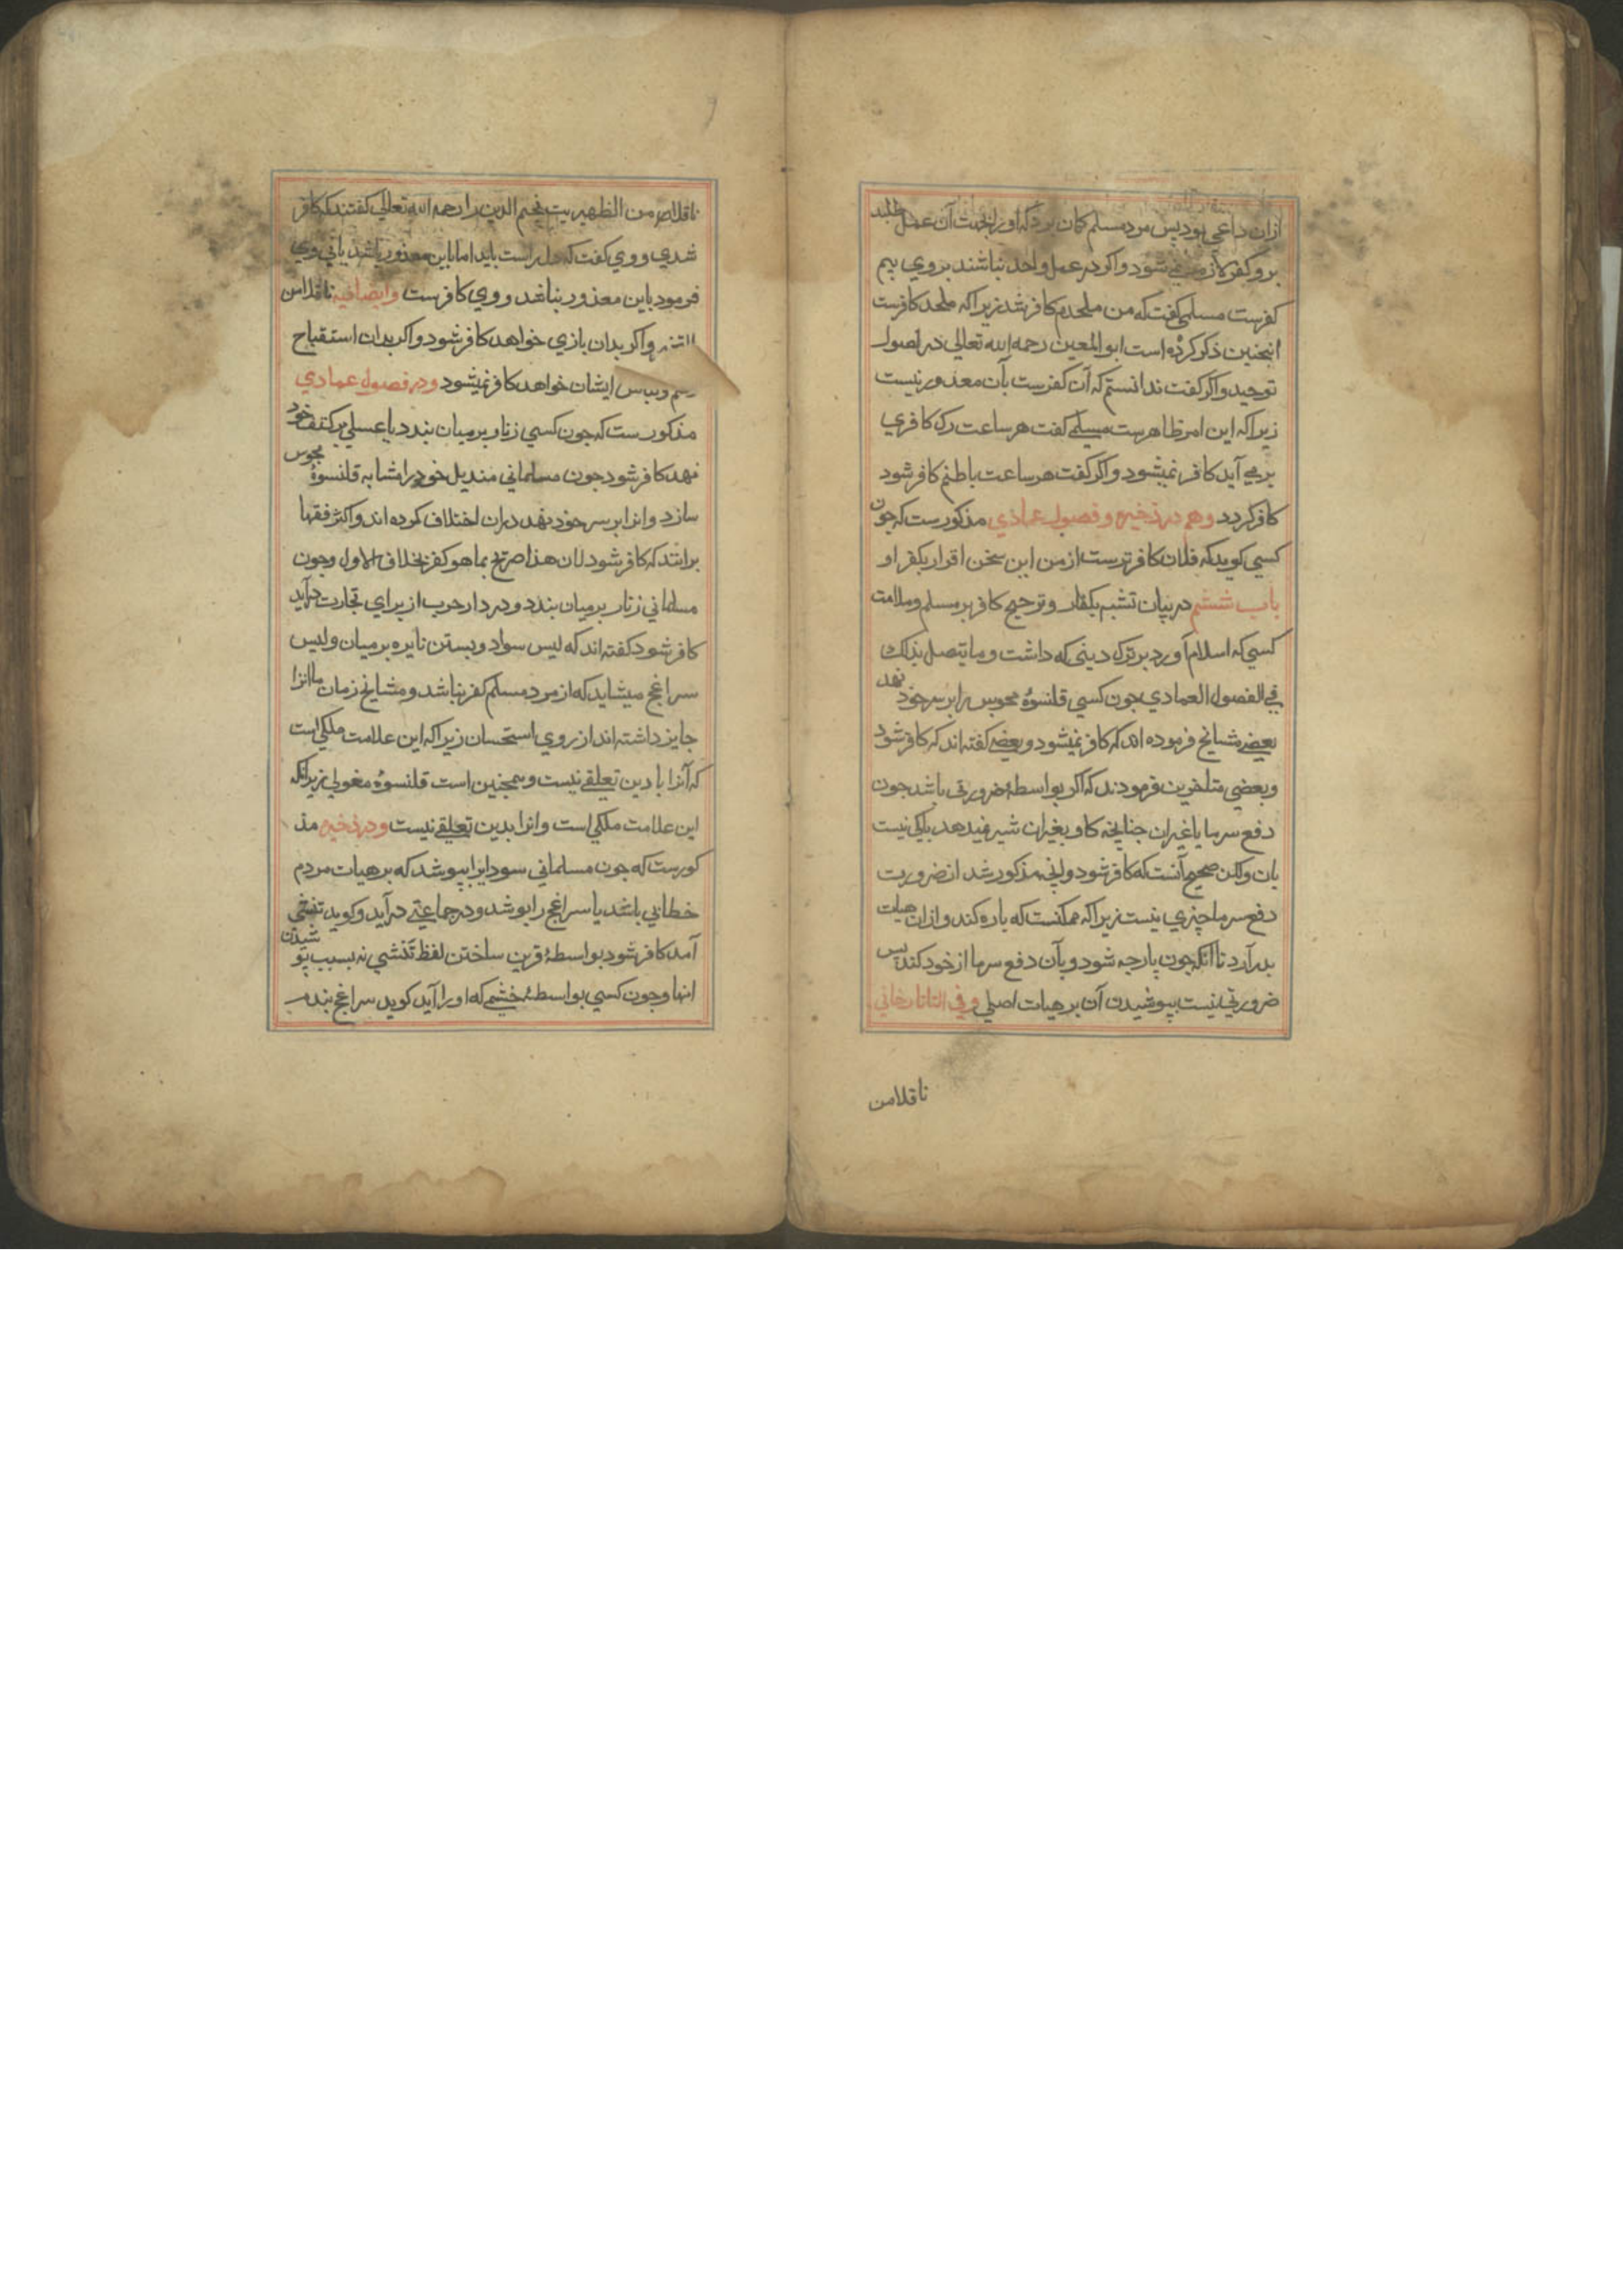 ازان داعي بود پس مرد مسلم كمان برد كه اورا بجهت آن عمل طلبد
بروكفر لازم نمي شود واكر در عمل واحد نباشند بروي بيم
كفرست مسلمي كفت كه من ملحدم كافر شد زيراكه ملحد كافرست
اينجنين ذكر كرده است ابو المعين رحمه الله تعالي در اصول
توحيد واكر كفت ندانستم كه آن كفرست بآن معذور نيست
زيراكه اين امر ظاهرست مسلمي كفت هر ساعت رك كافري
برمي آيد كافر نميشود واكر كفت هر ساعت باطنم كافر شود
كافر كردد وهم در ذخيره وفصول عمادي مذكورست كه جون
كسي كويد كه فلان كافرترست از من اين سخن اقرار بكفر او
باب ششم در بيان تشبه بكفار وترجيح كافر بر مسلم وملامت
كسي كه اسلام آورد بر ترك ديني كه داشت وما يتصل بذلك
في الفصول العمادي جون كسي قلنسوۀ مجوس را بر سر خود نهد
بعضے مشايخ فرموده اند كه كافر نميشود وبعضے كفته اند كه كافر شود
وبعضي متاخرين فرمودند كه اكر بواسطۀ ضرورتي باشد جون
دفع سرما يا غير ان جنانجه كاو بغير ان شير نميدهد باكي نيست
بان ولكن صحيح آنست كه كافر شود وانچه مذكور شد از ضرورت
دفع سرما چيزي نيست زيراكه ممكنست كه پاره كند وازان هيات
بدر آرد تا آنكه جون پارجه شود وبآن دفع سرما از خود كند پس
ضرورتي نيست بپوشيدن آن بر هيات اصلي وفي التاتارخاني
ناقلا من
ناقلا من الظهيريت نجم الدين را رحمه الله تعالي كفتند كه كافر
شدي ووي كفت كه جارراست بايد اما باين معذور باشد ياني وي
فرمود باين معذور نباشد ووي كافرست وايضا فيه ناقلا من
واكر بدان بازي خواهد كافر شود واكر بدان استقباح
رسم ولباس ايشان خواهد كافر نميشود ودر فصول عمادي
مذكورست كه جون كسي زنار بر ميان بندد يا عسلي بر كتف خود
نهد كافر شود جون مسلماني منديل خود را مشابه قلنسوۀ مجوس
سازد وانرا بر سر خود نهد دران اختلاف كرده اند واكثر فقها
برانند كه كافر شود لان هذا صريح بما هو كفر بخلاف الاول وجون
مسلماني زنار بر ميان بندد ودر دار حرب از براي تجارت درآيد
كافر شود كفته اند كه لبس سواد وبستن نايره بر ميان ولبس
سراغج ميشايد كه از مرد مسلم كفر نباشد ومشايخ زمان ما انرا
جايز داشته اند از روي استحسان زيراكه اين علامت ملكي است
كه آنرا بادين تعلقے نيست وهمجنين است قلنسوۀ مغولي زيرانكه
اين علامت ملكي است وانرا بدين تعلقے نيست ودر ذخيره مذ
كورست كه جون مسلماني سودايرا بپوشد كه بر هيات مردم
خطايي باشد يا سراغج را پوشد ودر جماعتے درآيد وكويد تنقشي
آمد كافر شود بواسطۀ قرين ساختن لفظ تنقشي نه بسبب پو شيدن
انها وجون كسي بواسطۀ خشمي كه اورا آيد كويد سراغج بندم